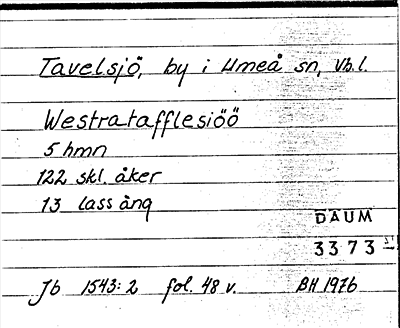 Tavelsjö, by i Umeå sn, Vb.l.
Westratafflesiöö
5 hmn
122 skl. åker
13 lass äng
DAUM
3373
Jb 1543:2 fol. 48 v. BH 1976